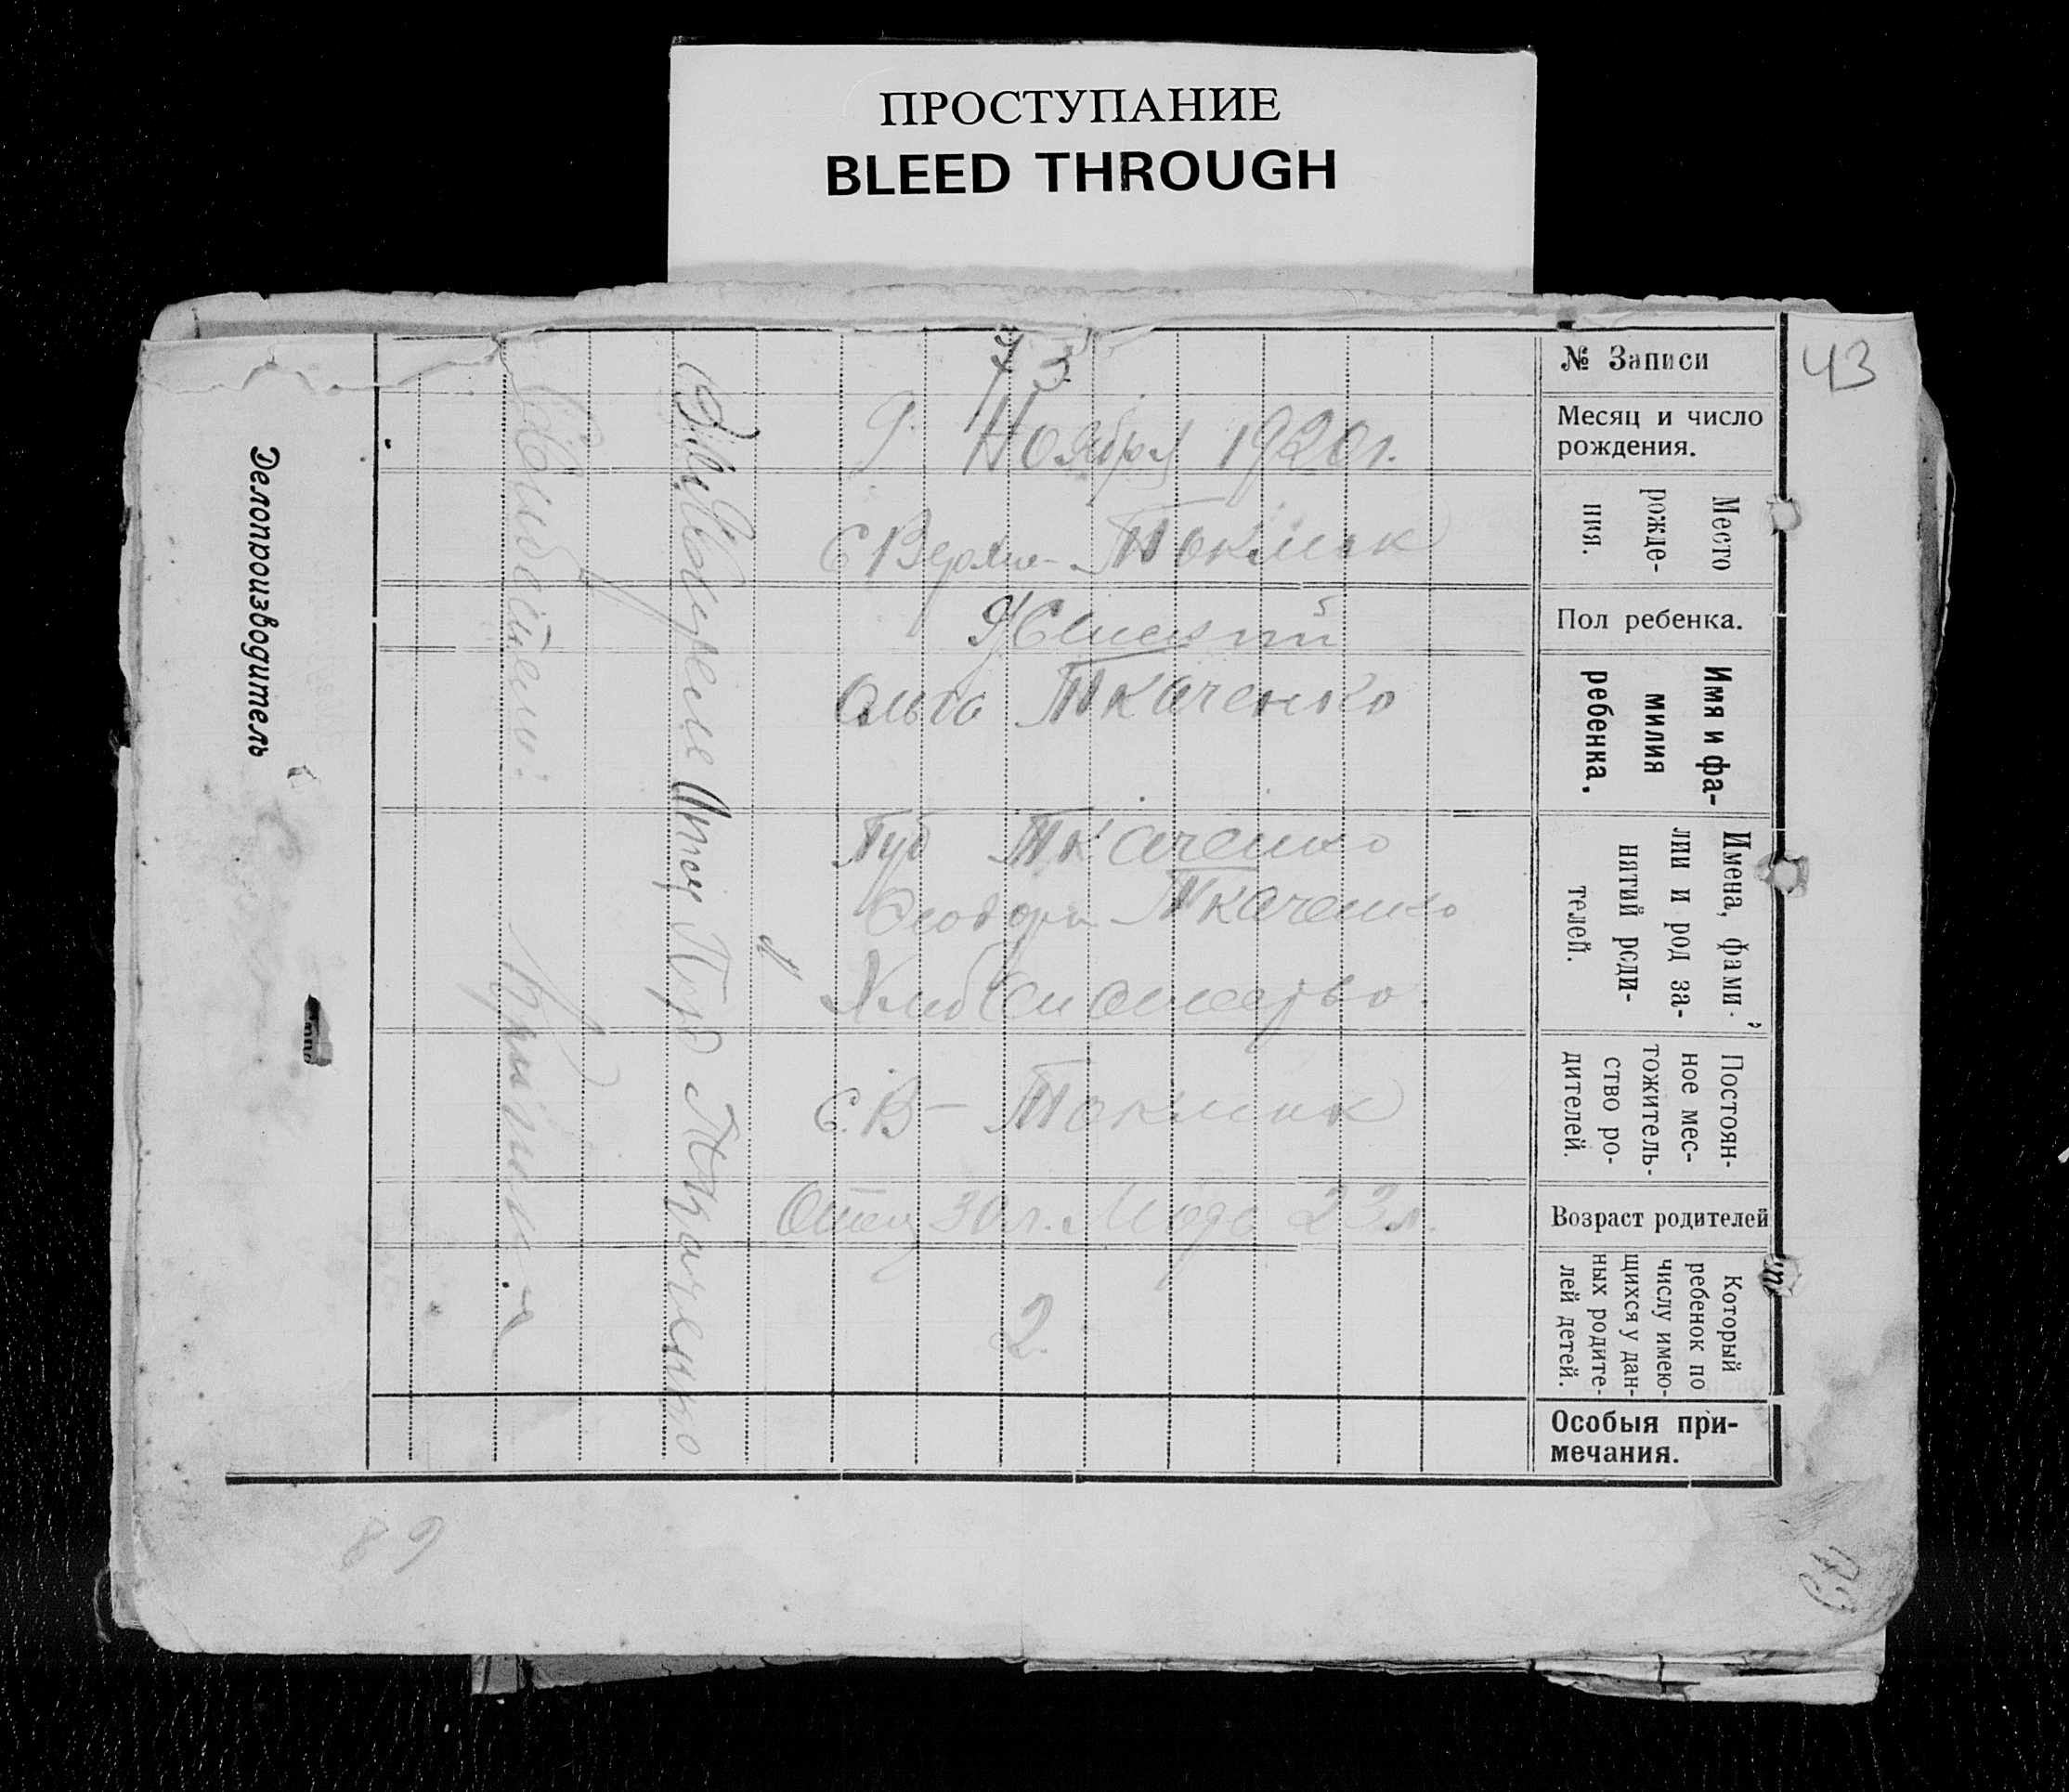 ПРОСТУПАНИЕ
BLEED THROUGH
43
№ Записи
73
Месяц и число
рождения.
9. Ноября 1920 г.
Место
рожде-
ния.
С Верхне-Токмак
Пол ребенка.
Женский
Имя и фа-
милия
ребенка.
Ольга Ткаченко
Имена, фами-
лии и род за-
нятий роди-
телей.
Пуд Ткаченко
Феодора Ткаченко
Постоян-
ное мес-
тожитель-
ство ро-
дителей.
С. В- Токмак
Возраст родителей
Отец 30 л. 23 л.
Который
ребенок по
числу имею-
щихся у дан-
ных родите-
лей детей.
2.
Особыя при-
мечания.
Отец Пуд Ткаченко
Свидетели:
Делопроизводитель
89